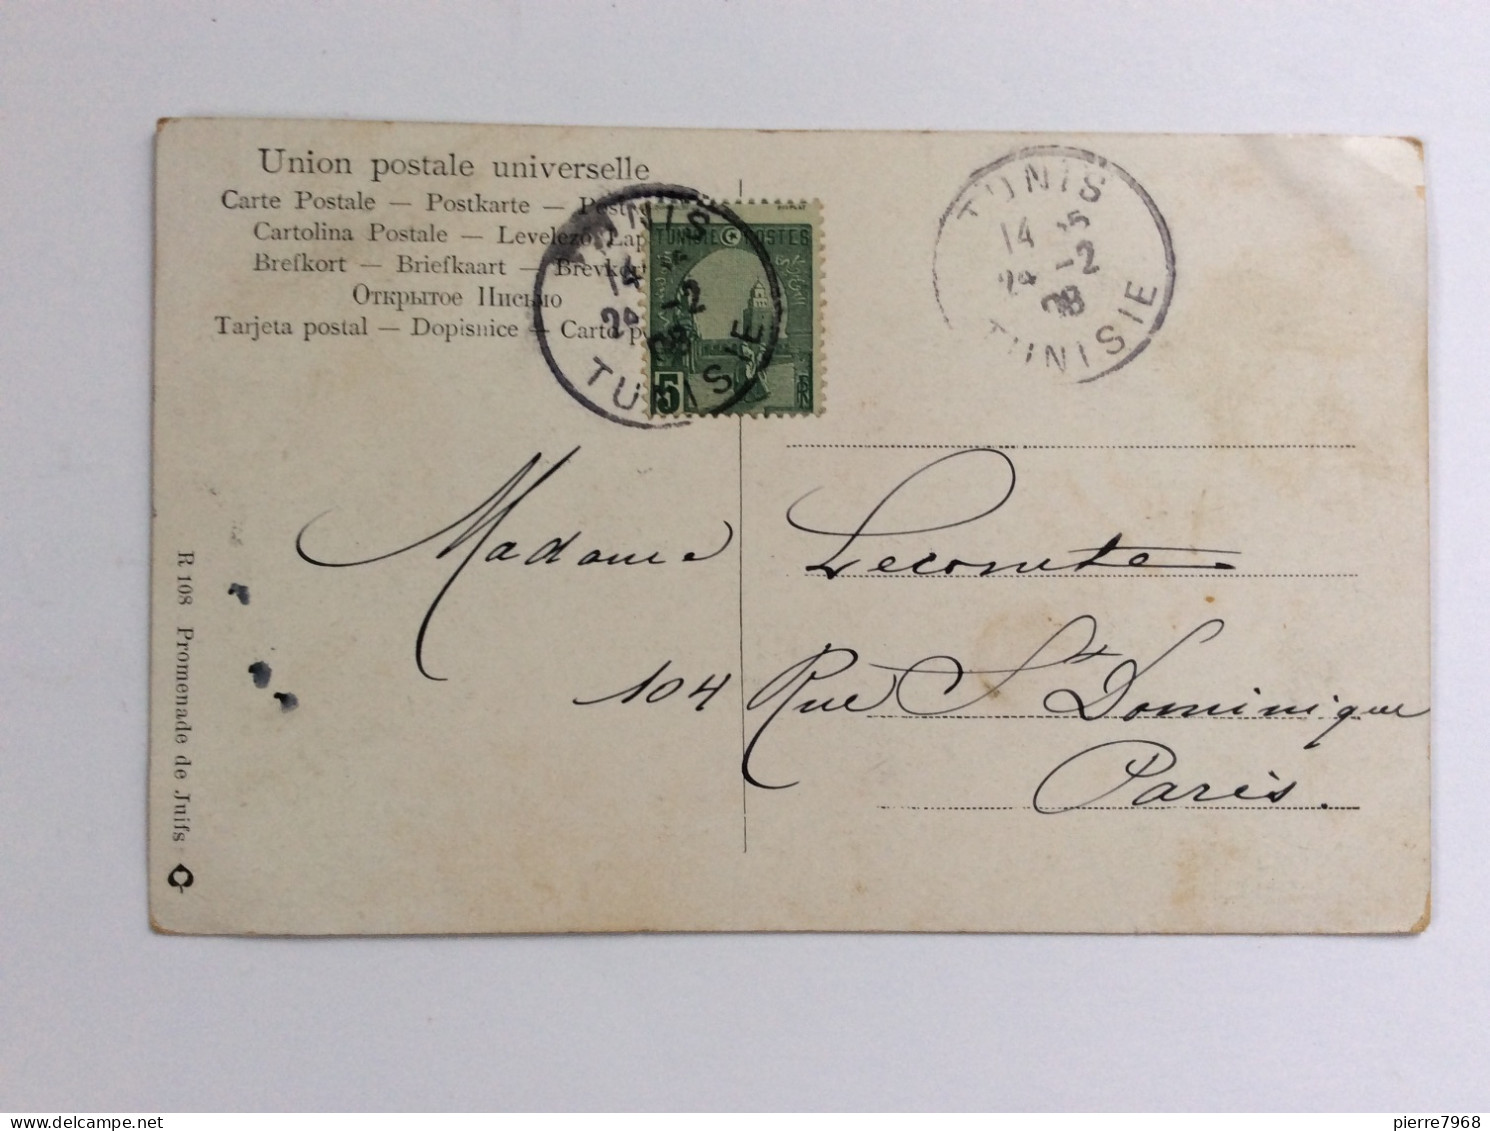 Union postale universelle
Carte Postale — Postkarte —
Cartolina Postale — Levelező Lap
Brefkort — Briefkaart — Brevkort
Открытое Письмо
Tarjeta postal — Dopisnice — Carto
TUNISIE POSTES
5
TUNIS
14
24 -2
08
TUNISIE
TUNIS
14 15
24 -2
08
TUNISIE
Madame Lecomte
104 Rue St Dominique
Paris.
R 108 Promenade de Juifs
pierre7968